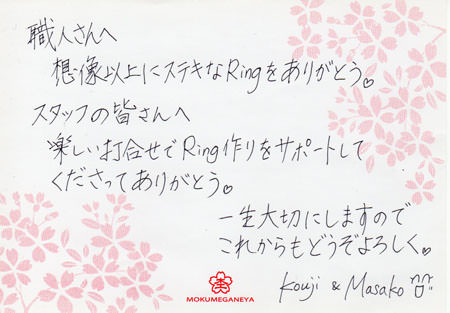 職人さんへ
想像以上にステキなRingをありがとう♡
スタッフの皆さんへ
楽しい打合せでRing作りをサポートして
くださってありがとう。
一生大切にしますので
これからもどうぞよろしく。
Kouji & Masako
MOKUMEGANEYA